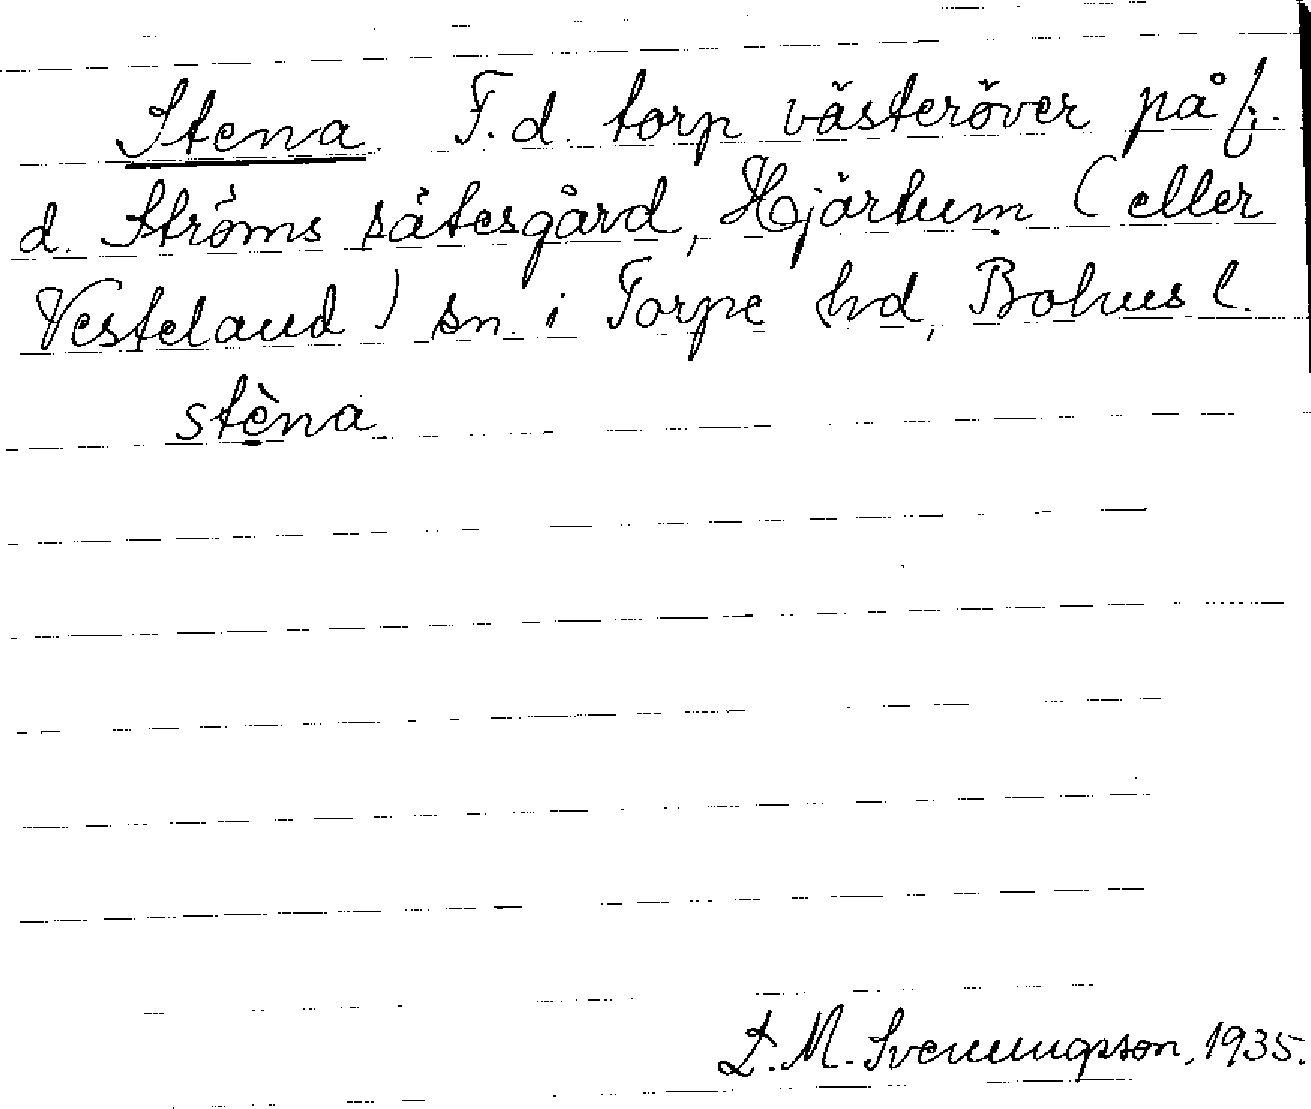 Stena. F.d. torp västeröver på f.
d. Ströms sätesgård, Hjärtum (eller
Vesteland) sn. i Torpe hd, Bohusl.
stèna
L.M. Svenungsson, 1935.